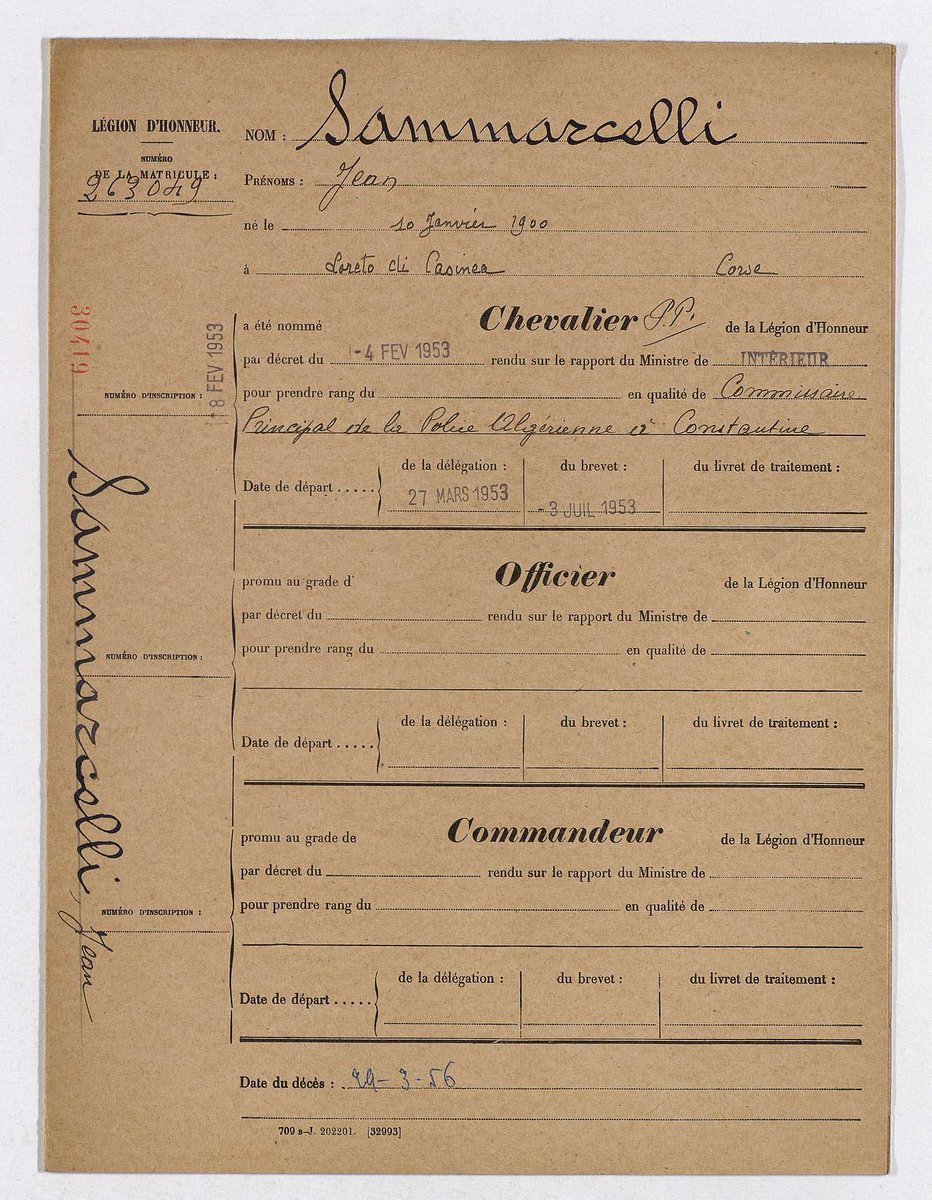 LÉGION D'HONNEUR.
NUMÉRO
DE LA MATRICULE :
263049
NOM : Sammarcelli
PRÉNOMS : Jean
né le 10 Janvier 1900
à Loreto di Casinca Corse
30419
8 FEV 1953
NUMÉRO D'INSCRIPTION :
a été nommé Chevalier P.P. de la Légion d'Honneur
par décret du -4 FEV 1953 rendu sur le rapport du Ministre de INTÉRIEUR
pour prendre rang du en qualité de Commissaire
Principal de la Police Algérienne à Constantine
de la délégation : du brevet : du livret de traitement :
Date de départ ..... 27 MARS 1953 -3 JUIL 1953
Sammarcelli, Jean
promu au grade d' Officier de la Légion d'Honneur
par décret du rendu sur le rapport du Ministre de
pour prendre rang du en qualité de
NUMÉRO D'INSCRIPTION :
de la délégation : du brevet : du livret de traitement :
Date de départ .....
promu au grade de Commandeur de la Légion d'Honneur
par décret du rendu sur le rapport du Ministre de
pour prendre rang du en qualité de
NUMÉRO D'INSCRIPTION :
de la délégation : du brevet : du livret de traitement :
Date de départ .....
Date du décès : 29-3-56
709 B-J. 202201. [32993]